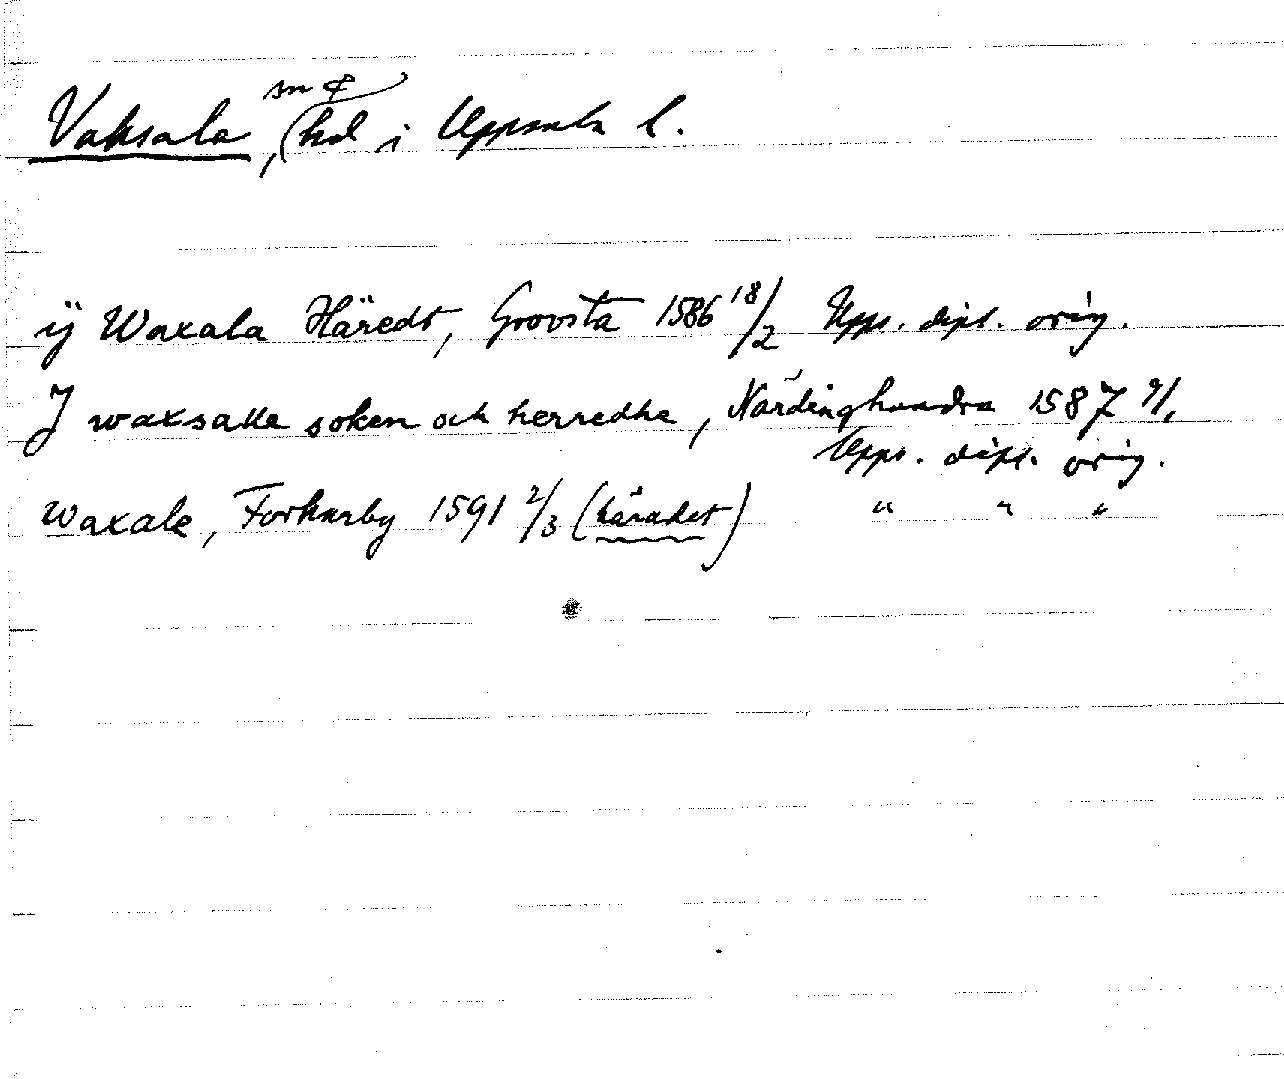 Vaksala, sn o (hd i Uppsala l.
ÿ Waxala Häredt, Grovsta 1586 18/2 Upps. dipl. orig.
J waxsalle soken och herredhe, Närdinghundra 1587 9/1
Upps. dipl. orig.
Waxale, Forkarby 1591 2/3 (häradet) " " "